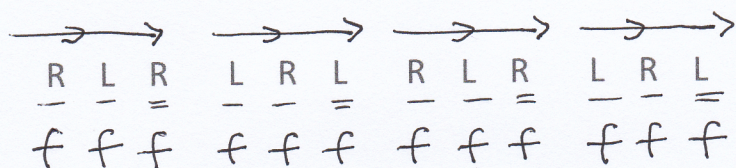 R L R L R L R L R L R L
f f f f f f f f f f f f